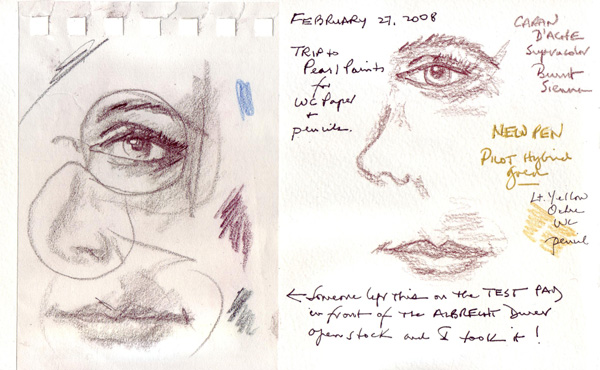 FEBRUARY 27, 2008
TRIP to
Pearl Paints
for
WC Paper
+
pencils.
CARAN
D'ACHE
Supracolor
Burnt
Sienna
NEW PEN
PILOT Hybrid
green
Lt. Yellow
Ochre
WC
pencil
← Someone left this on the TEST PAD
in front of the ALBRECHT Durer
open stock and I took it!